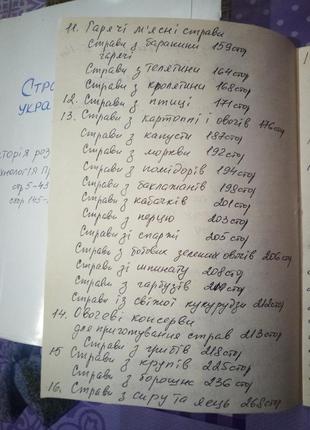 11. Гарячі м'ясні страви
Страви з баранини 159стр
гарячі
Страви з телятини 164стр
Страви з кролятини 168стр
12. Страви з птиці 171стр
13. Страви з картоплі і овочів 176стр
Страви з капусти 187стр
Страви з моркви 192стр
Страви з помідорів 194стр
Страви з баклажанів 198стр
Страви з кабачків 201стр
Страви з перцю 203стр
Страви зі спаржі 205стр
Страви з бобових зелених овочів 206стр
Страви зі шпинату 208стр
Страви з гарбузів стр
Страви із свіжої кукурудзи 212стр
14. Овочеві консерви
для приготування страв 213стр
15 Страви з грибів 218стр
Страви з крупів 225стр
Страви з борошна 236стр
16. Страви з сиру та яєць 268стр
СТРА
УКРА
торія роз
стр5-43
стр 145-